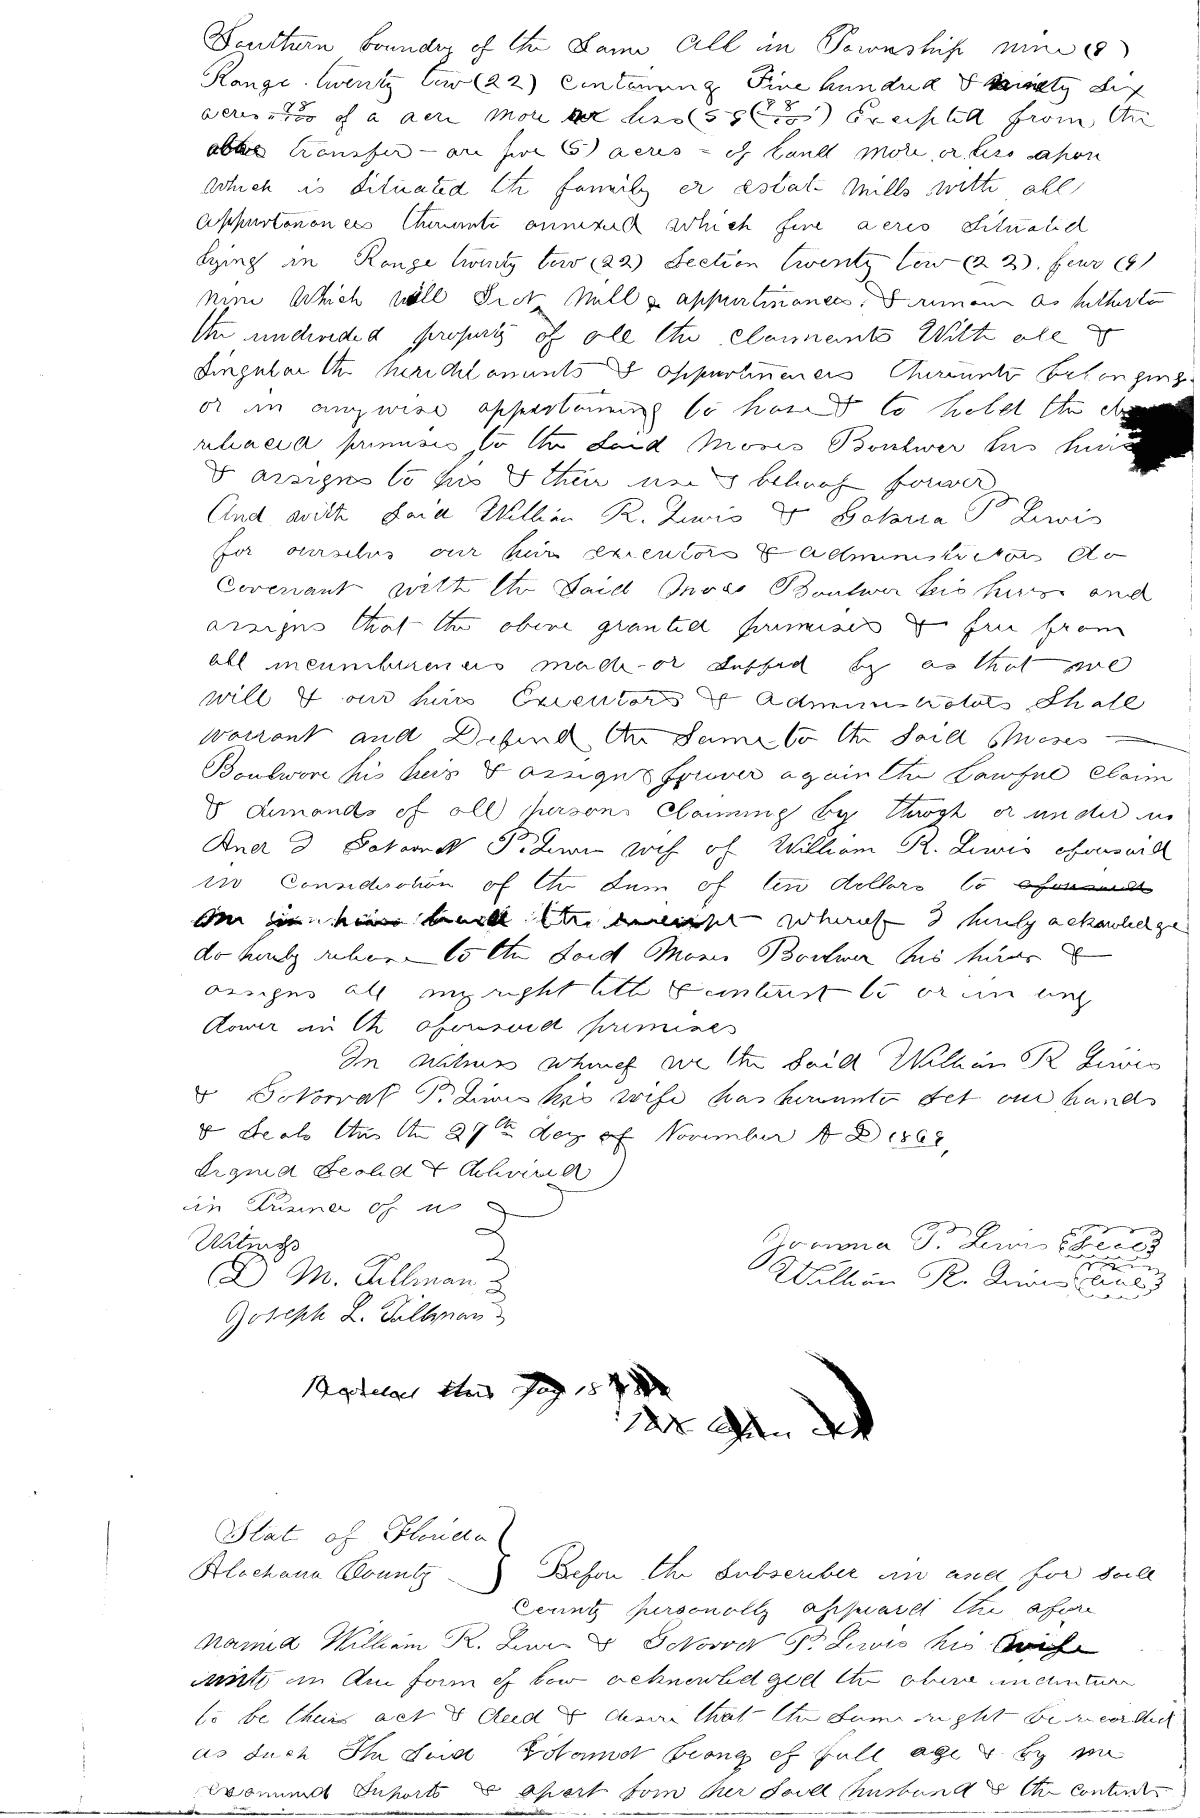 Southern boundry of the Same all in Township nine (9)
Range twenty tow (22) Containing Five hundred & ninety Six
acres 98/100 of a acre more or less (59 98/100) Excepted from the
above transfer - are five (5) acres - of land more or less apon
which is Situated the family or estate Mills with all
appurtanances thereunto annexed which five acres Situated
lying in Range twenty tow (22) Section twenty tow (22). four (4)
nine which will Mill & appurtinances. & remain as hitherto
the undivided property of all the claimants With all &
Singular the & appurtinences thereunto belonging
or in anywise appertaining to have & to hold the
released premises to the Said Moses Boulwer his heirs
& assigns to his & their use & behoof forever
And with Said William R. Lewis & P Lewis
for ourselves our heirs executors & administrators do
Covenant with the Said Moses Boulwer his heirs and
assigns that the above granted premises & free from
all incumberences made or by as that we
will & our heirs Executors & Administrators Shall
warrant and Defend the Same to the Said Moses
Boulwore his heirs & assigns forever again the Lawful claim
& demands of all persons Claiming by through or under us
And I P. Lewis wife of William R. Lewis aforesaid
in Consideration of the Sum of ten dollars to aforesaid
in hand the receipt whereof I herely acknowledge
do herely release to the Said Moses Boulwer his heirs &
assigns all my right title & interest to or in any
dower in th aforesaid premises
In witness whereof we the Said William R Lewis
& P. Lewis his wife has hereunto Set our hands
& Seals this the 27th day of November A D 1869,
Signed Sealed & delivired
in Presence of us
Witness
D M. Tillman
Joseph L. Tillman
Joanna P. Lewis Seal
William R. Lewis Seal
this 18
Stat of Florida
Alachaua County Before the Subscriber in and for said
County personally appeard the afore
named William R. Lewis & P. Lewis his wife
in due form of law acknowledged the above indenture
to be their act & deed & desire that the Same might be recorded
as Such The Said being of full age & by me
examined & apart from her Said husband & the contents